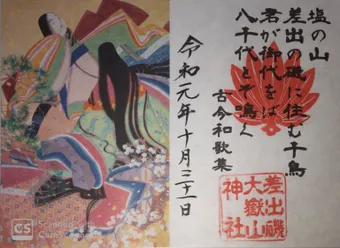 塩の山
差出の磯に住む千鳥
君が御代をば
八千代とぞ鳴く
古今和歌集
令和元年十月三十一日
差出磯
大嶽山
神社
CS